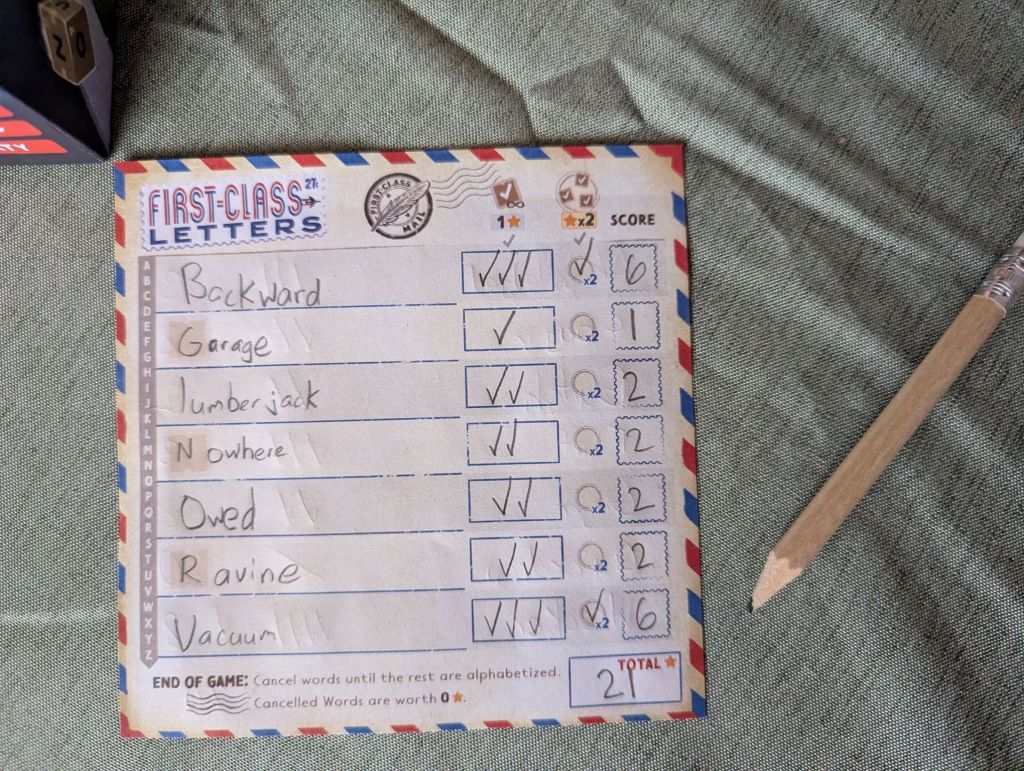 N 0
TY
FIRST-CLASS 27¢
LETTERS
FIRST-CLASS
MAIL
1 x2 SCORE
A B C D E F G H I J K L M N O P Q R S T U V W X Y Z
Backward x2 6
Garage x2 1
lumberjack x2 2
Nowhere x2 2
Owed x2 2
Ravine x2 2
Vacuum x2 6
END OF GAME: Cancel words until the rest are alphabetized.
Cancelled Words are worth 0.
TOTAL
21